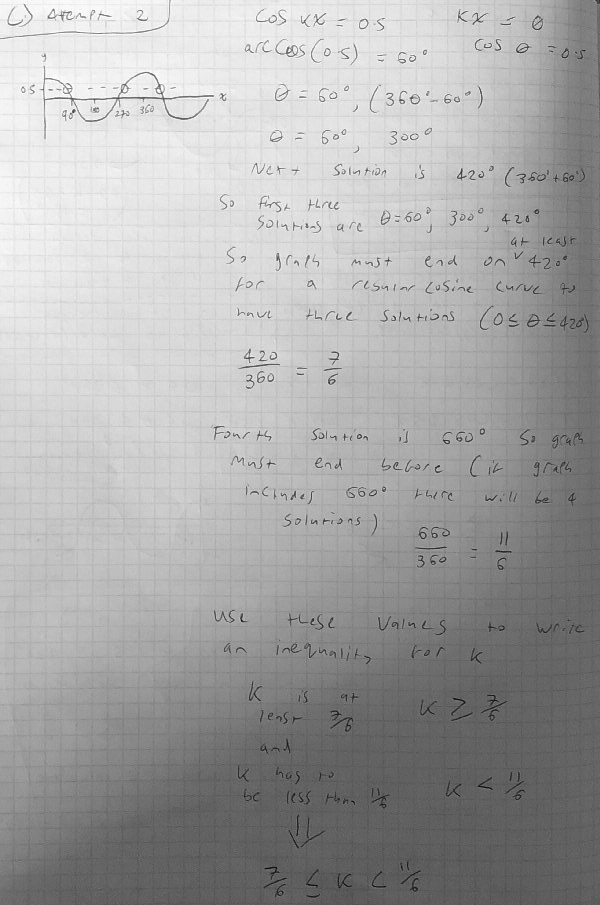 C) Attempt 2
cos kx = 0.5 kx = θ
arccos(0.5) = 60° cos θ = 0.5
y
0.5
x
90° 180 270 360
θ = 60°, (360°-60°)
θ = 60°, 300°
Next solution is 420° (360°+60°)
So first three
solutions are θ=60°, 300°, 420°
at least
So graph must end on ∨ 420°
for a regular cosine curve to
have three solutions (0≤θ≤420)
420/360 = 7/6
Fourth solution is 660° so graph
must end before (if graph
includes 660° there will be 4
solutions)
660/360 = 11/6
use these values to write
an inequality for k
k is at
least 7/6 k ≥ 7/6
and
k has to
be less than 11/6 k < 11/6
⇓
7/6 ≤ k < 11/6